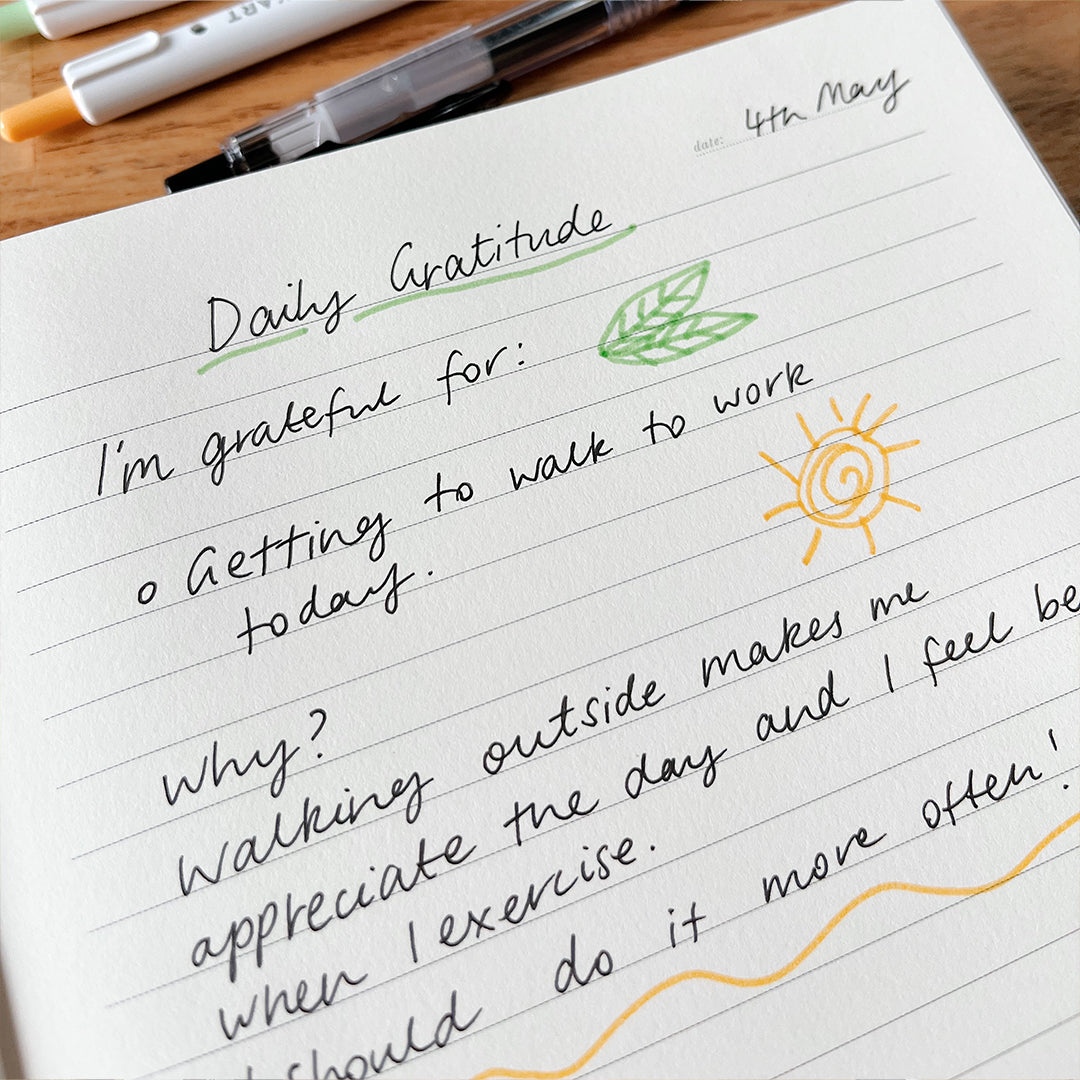 KART
date: 4th May
Daily Gratitude
I'm grateful for:
o Getting to walk to work
today.
Why?
Walking outside makes me
appreciate the day and I feel be
when I exercise.
I should do it more often!